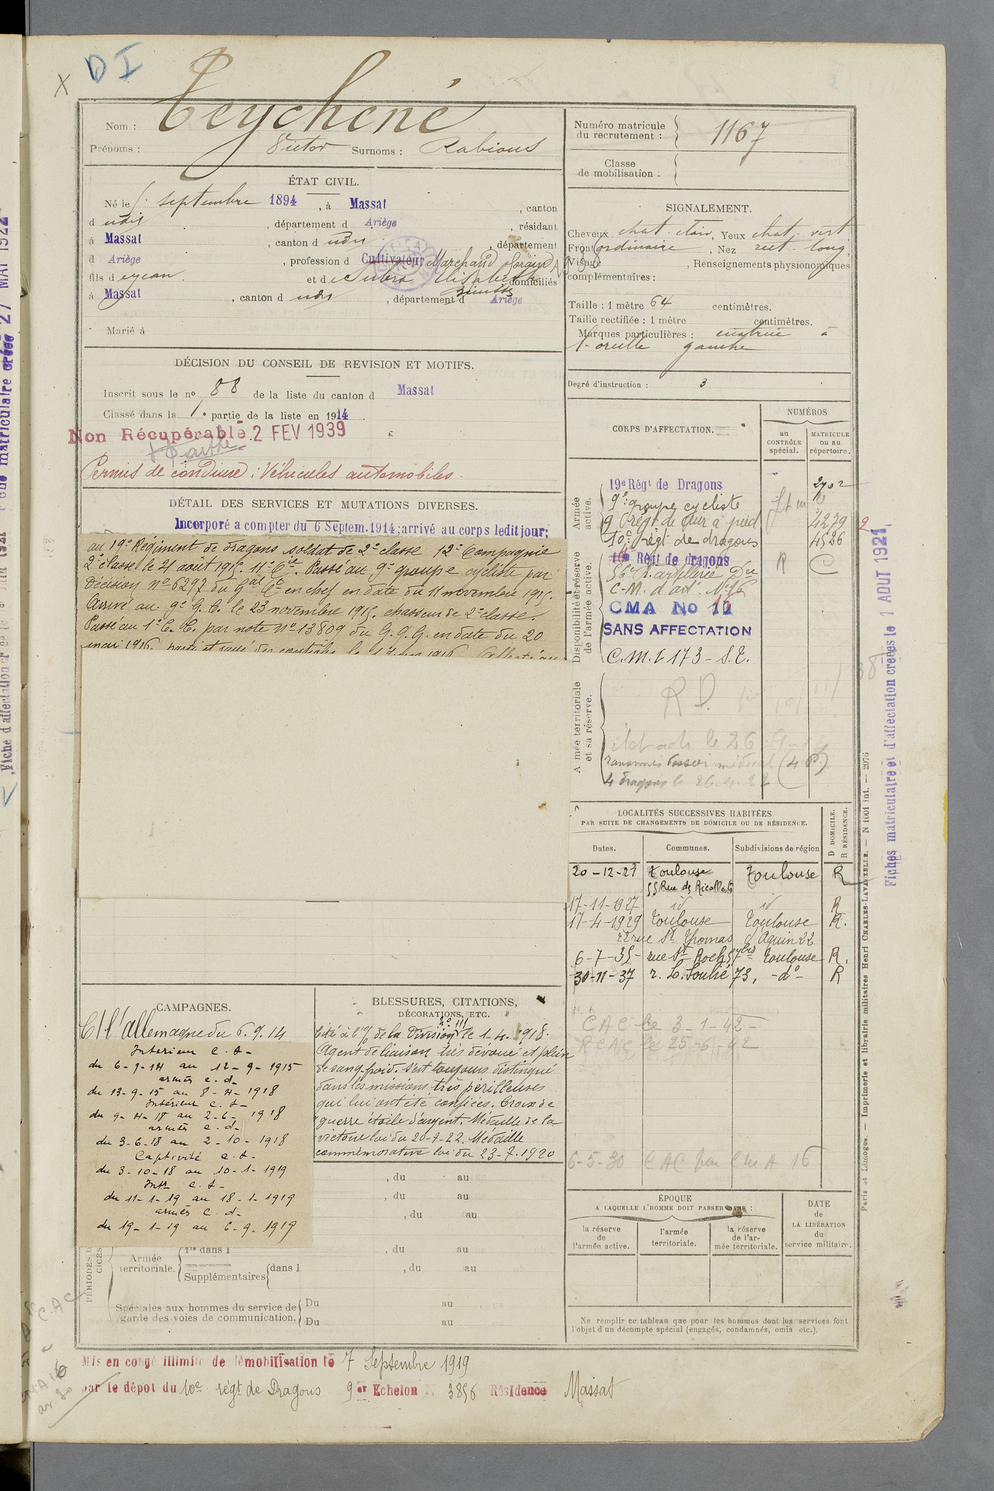 X D I
Nom : Teychené
Prénoms : Victor Surnoms : Rabious
Numéro matricule du recrutement : 1167
Classe de mobilisation :
ÉTAT CIVIL.
Né le septembre 1894, à Massat, canton
d udis, département d Ariège, résidant
à Massat, canton d udis, département
d Ariège, profession d Cultivateur Marchand forain
fils d eyean et d domiciliés
à Massat, canton d udis, département d Ariège
Marié à
SIGNALEMENT.
Cheveux chat. clair, Yeux chat. vert
Front ordinaire, Nez rect. long
Visage , Renseignements physionomiques
complémentaires :
Taille : 1 mètre 64 centimètres.
Taille rectifiée : 1 mètre centimètres.
Marques particulières : cicatrice à
l'oreille gauche
Degré d'instruction : 3
DÉCISION DU CONSEIL DE REVISION ET MOTIFS.
Inscrit sous le no 88 de la liste du canton d Massat
Classé dans la 1e partie de la liste en 1914
Non Récupérable. 2 FEV 1939
Permis de conduire : Véhicules automobiles.
DÉTAIL DES SERVICES ET MUTATIONS DIVERSES.
Incorporé a compter du 6 Septem. 1914; arrivé au corps ledit jour;
au 19e Régiment de dragons soldat de 2e classe 12e Compagnie
2e classe le 21 août 1915. 11e Cie. Passé au 9e groupe cycliste par
décision no 6397 du Gal Ct en chef en date du 11 novembre 1915.
Arrivé au 9e G. C. le 23 novembre 1915. chasseur de 2e classe.
Passé au 1e C. C. par note No 13809 du G. Q. G. en date du 20
mai 1916
CORPS D'AFFECTATION.
NUMÉROS
au CONTRÔLE spécial.
MATRICULE ou au répertoire.
Armée active.
19e Régt de Dragons 2702
9e groupe cycliste
9e régt de cuir. à pied 4279
10e régt de dragons 4526
Disponibilité et réserve de l'armée active.
Régt de dragons R C
C.M. d'art. No 16
CMA No
SANS AFFECTATION
C.M. I 173 - S.E.
Armée territoriale et sa réserve.
R.D.
LOCALITÉS SUCCESSIVES HABITÉES
PAR SUITE DE CHANGEMENTS DE DOMICILE OU DE RÉSIDENCE.
Dates. Communes. Subdivisions de région
D DOMICILE. R RÉSIDENCE.
20-12-21 Toulouse Toulouse R
55 Rue des Récollets
17-11-1927 id id R
17-4-1929 Toulouse Toulouse R.
22 rue St Thomas d'Aquin 22
6-7-35- rue St Roch Toulouse R.
30-11-37 r. L. Soulié 73, -do- R
CAC le 3-1-42-
RCAC le 25-6-42
6-5-30 CAC par CMA 16
CAMPAGNES.
Ctl' allemagne du 6.9.14
Intérieur C. S-
du 6-9-14 au 12-9-1915
armées C. d-
du 13-9-15 au 8-4-1918
Intérieur C. S-
du 9-4-18 au 2-6-1918
armées C. d-
du 3-6-18 au 2-10-1918
Captivité C. S-
du 3-10-18 au 10-1-1919
Intr C. S-
du 11-1-19 au 18-1-1919
armées C. d-
du 19-1-19 au 6-9-1919
BLESSURES, CITATIONS, DÉCORATIONS, ETC.
Cité à l'O/ de la Division no 111 le 1.4.1918.
Agent de liaison très dévoué et plein
de sang froid. S'est toujours distingué
dans les missions très périlleuses
qui lui ont été confiées. Croix de
guerre étoile d'argent. Médaille de la
victoire loi du 20-7-22. Médaille
commémorative loi du 23-7-1920
, du au
, du au
, du au
, du au
, du au
Armée territoriale. 1re dans l
Supplémentaires dans l
Spéciales aux hommes du service de garde des voies de communication. Du au
Du au
ÉPOQUE
A LAQUELLE L'HOMME DOIT PASSER DANS :
la réserve de l'armée active.
l'armée territoriale.
la réserve de l'armée territoriale.
DATE de LA LIBÉRATION du service militaire.
Ne remplir ce tableau que pour les hommes dont les services font
l'objet d'un décompte spécial (engagés, condamnés, omis etc.).
Mis en congé illimité de démobilisation le 7 Septembre 1919
par le dépot du 10e régt de Dragons 9e Echelon No 3856 Résidence Massat
Fiches matriculaire et d'affectation créées le 1 AOUT 1921
Paris et Limoges. — Imprimerie et librairie militaires Henri CHARLES-LAVAUZELLE.
27 MAI 1922